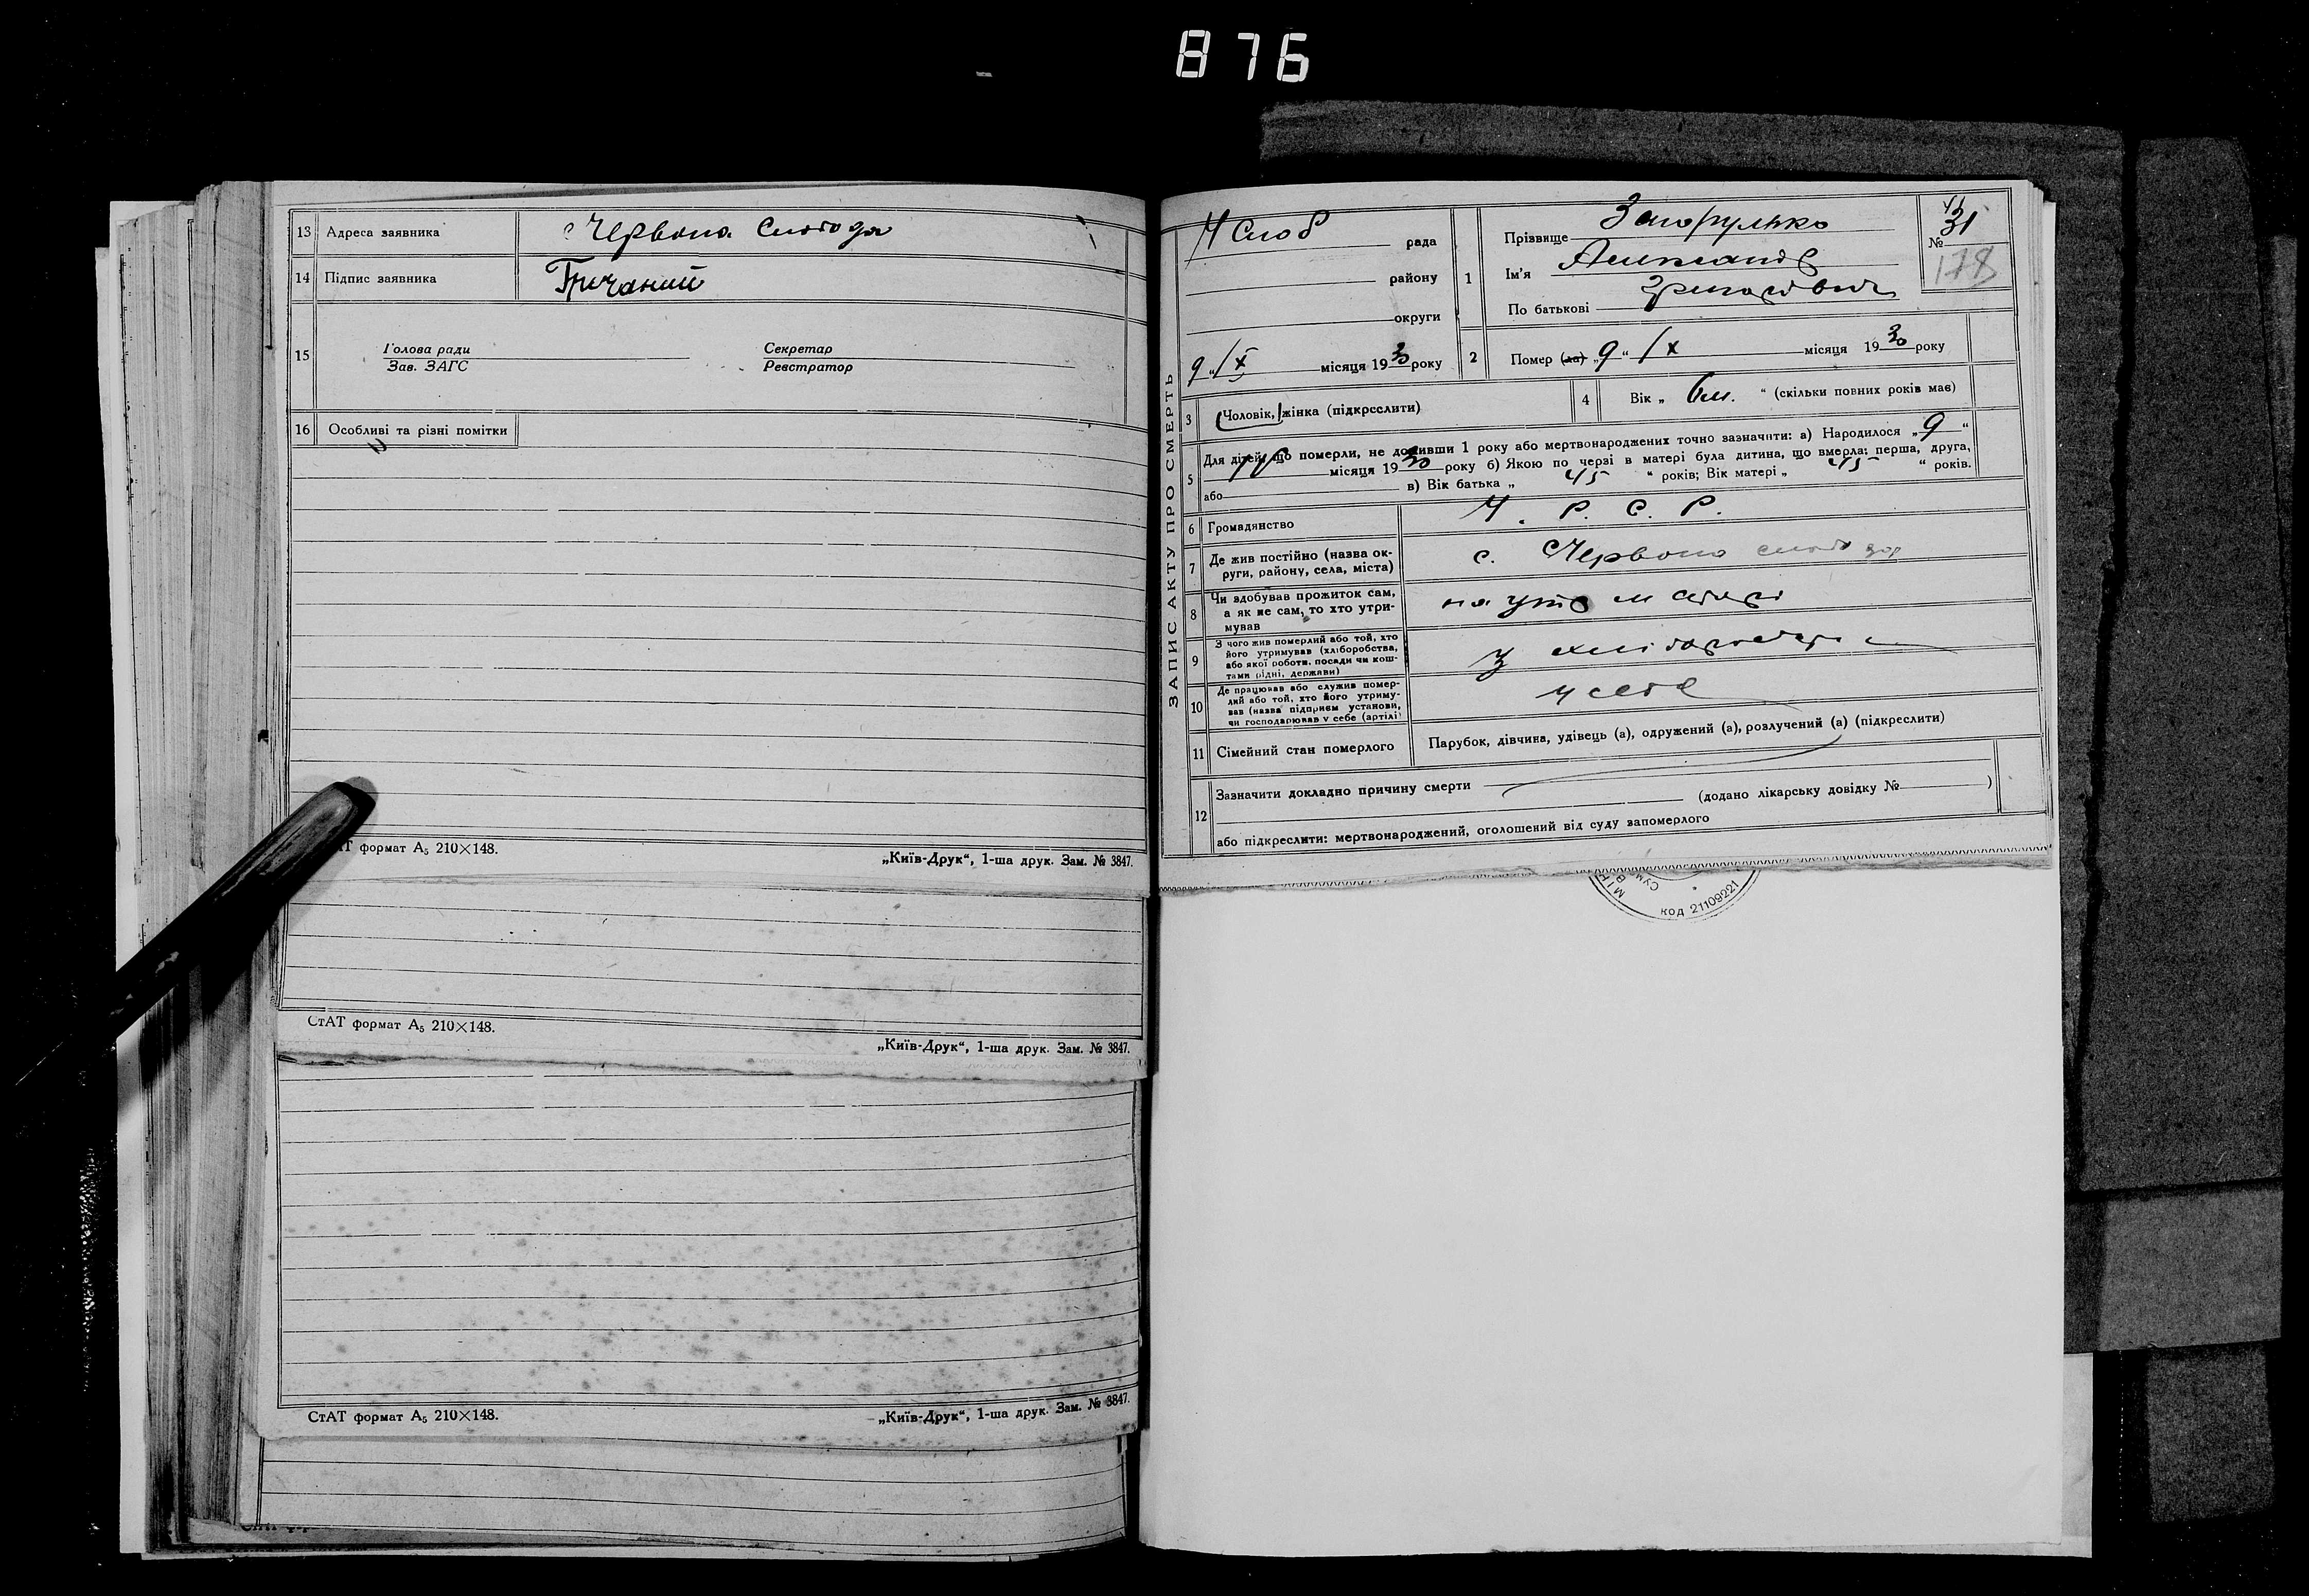 876
13 Адреса заявника с Червона Слобода
14 Підпис заявника Гричаний
15 Голова ради Секретар
Зав. ЗАГС Реєстратор
16 Особливі та різні помітки
формат А5 210×148.
„Київ-Друк“, 1-ша друк. Зам. № 3847.
СтАТ формат А5 210×148.
„Київ-Друк“, 1-ша друк. Зам. № 3847.
СтАТ формат А5 210×148.
„Київ-Друк“, 1-ша друк. Зам. № 3847.
ЗАПИС АКТУ ПРО СМЕРТЬ
Ч Слоб рада
району
округи
9 „ IX місяця 1930 року
1 Прізвище Загорулько
Ім'я Александр
По батькові Григорович
№ 31
178
2 Помер (ла) „ 9 “ IX місяця 1930 року
3 Чоловік, жінка (підкреслити)
4 Вік „ 6 м. “ (скільки повних років мав)
5 Для дітей, що померли, не доживши 1 року або мертвонароджених точно зазначити: а) Народилося „ 9 “
місяця 1930 року б) Якою по черзі в матері була дитина, що вмерла: перша, друга,
або в) Вік батька „ 45 “ років; Вік матері „ 45 “ років.
6 Громадянство У. Р. С. Р.
7 Де жив постійно (назва ок-
руги, району, села, міста) с. Червона слобода
8 Чи здобував прожиток сам,
а як не сам, то хто утри-
мував
на утр
9 З чого жив померлий або той, хто
його утримував (хліборобства,
або якої роботи, посади чи кош-
тами рідні, держави)
з
10 Де працював або служив помер-
лий або той, хто його утриму-
вав (назва підприєм установи,
чи господарював у себе (артілі)
у себе
11 Сімейний стан померлого Парубок, дівчина, удівець (а), одружений (а), розлучений (а) (підкреслити)
12 Зазначити докладно причину смерти
(додано лікарську довідку № )
або підкреслити: мертвонароджений, оголошений від суду запомерлого
код 21109221